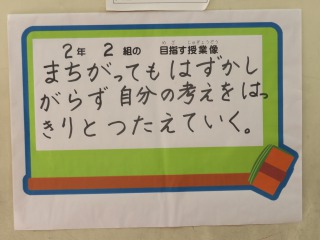 2年 2組の 目指す授業像
まちがってもはずかし
がらず自分の考えをはっ
きりとつたえていく。